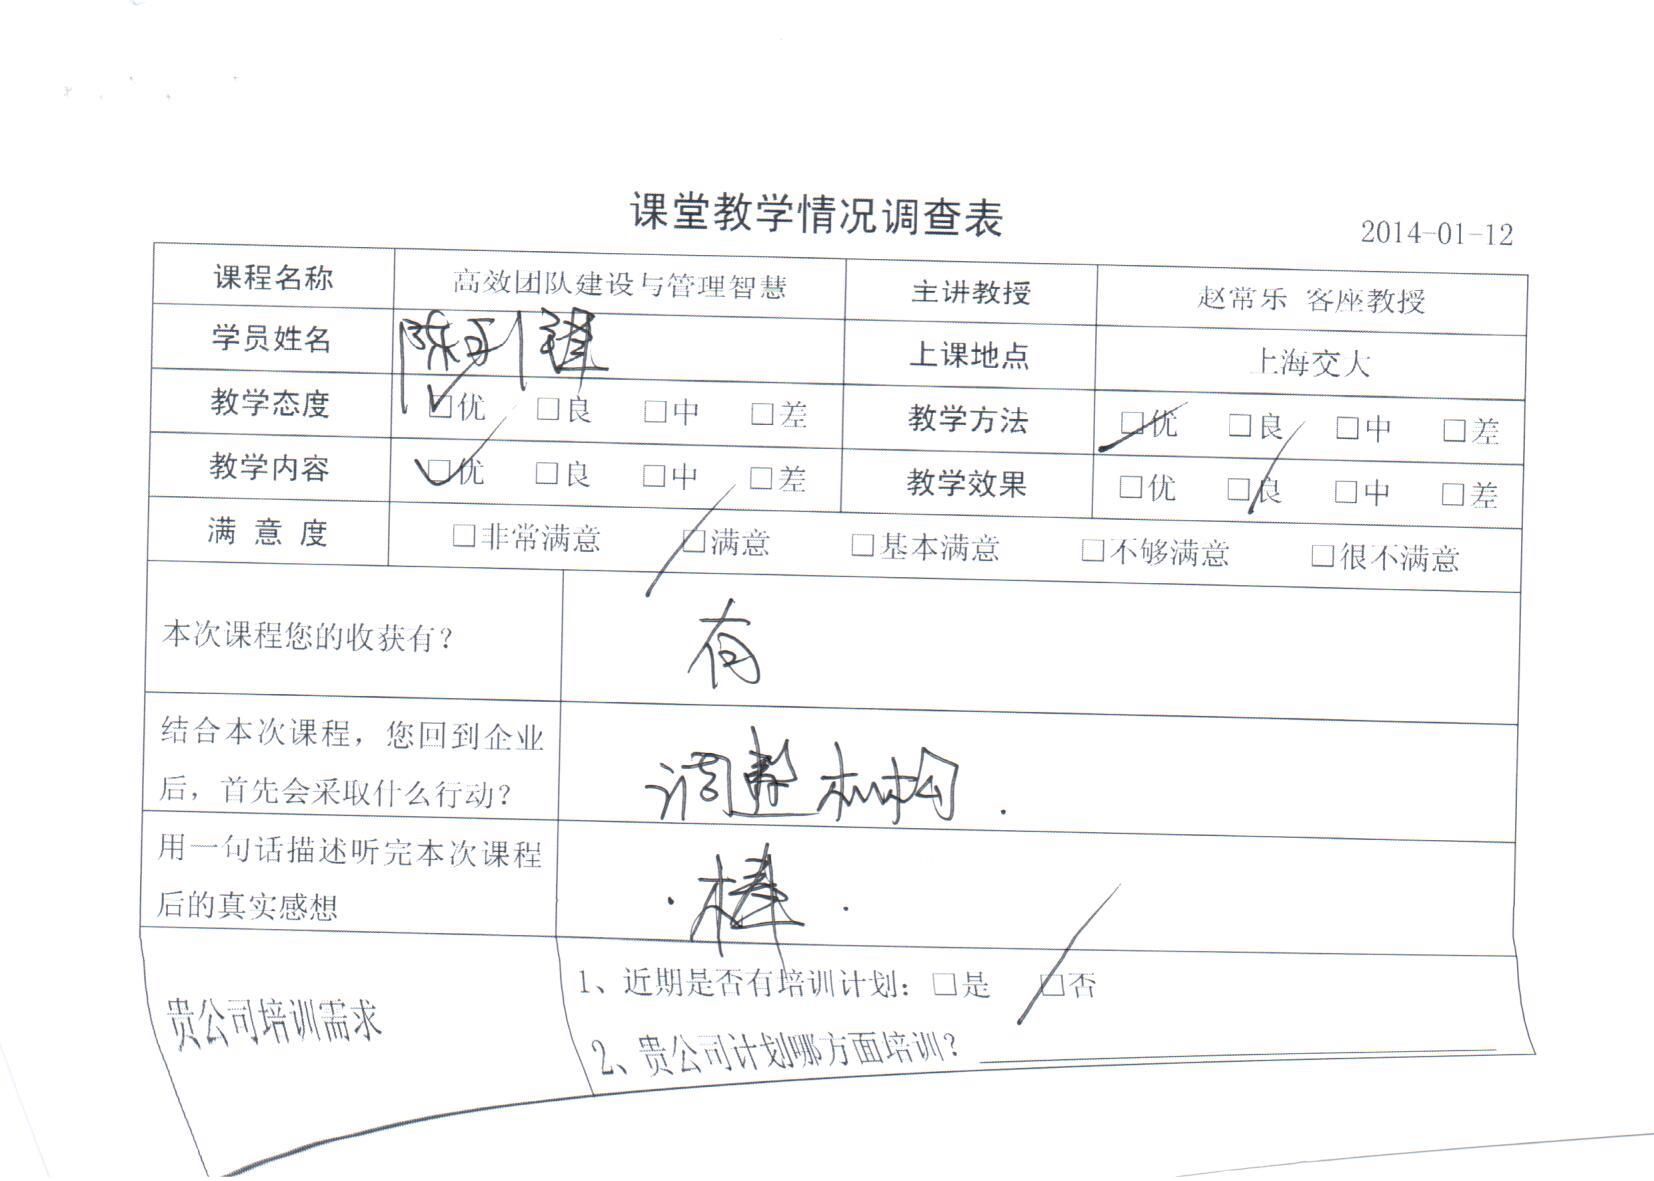 课堂教学情况调查表
2014-01-12
课程名称 高效团队建设与管理智慧 主讲教授 赵常乐 客座教授
学员姓名 陈 锋 上课地点 上海交大
教学态度 ☑优 □良 □中 □差 教学方法 ☑优 □良 □中 □差
教学内容 ☑优 □良 □中 □差 教学效果 □优 ☑良 □中 □差
满意度 □非常满意 ☑满意 □基本满意 □不够满意 □很不满意
本次课程您的收获有？ 有
结合本次课程，您回到企业
后，首先会采取什么行动？ 调整机构.
用一句话描述听完本次课程
后的真实感想 ·棒.
贵公司培训需求
1、近期是否有培训计划：□是 ☑否
2、贵公司计划哪方面培训？